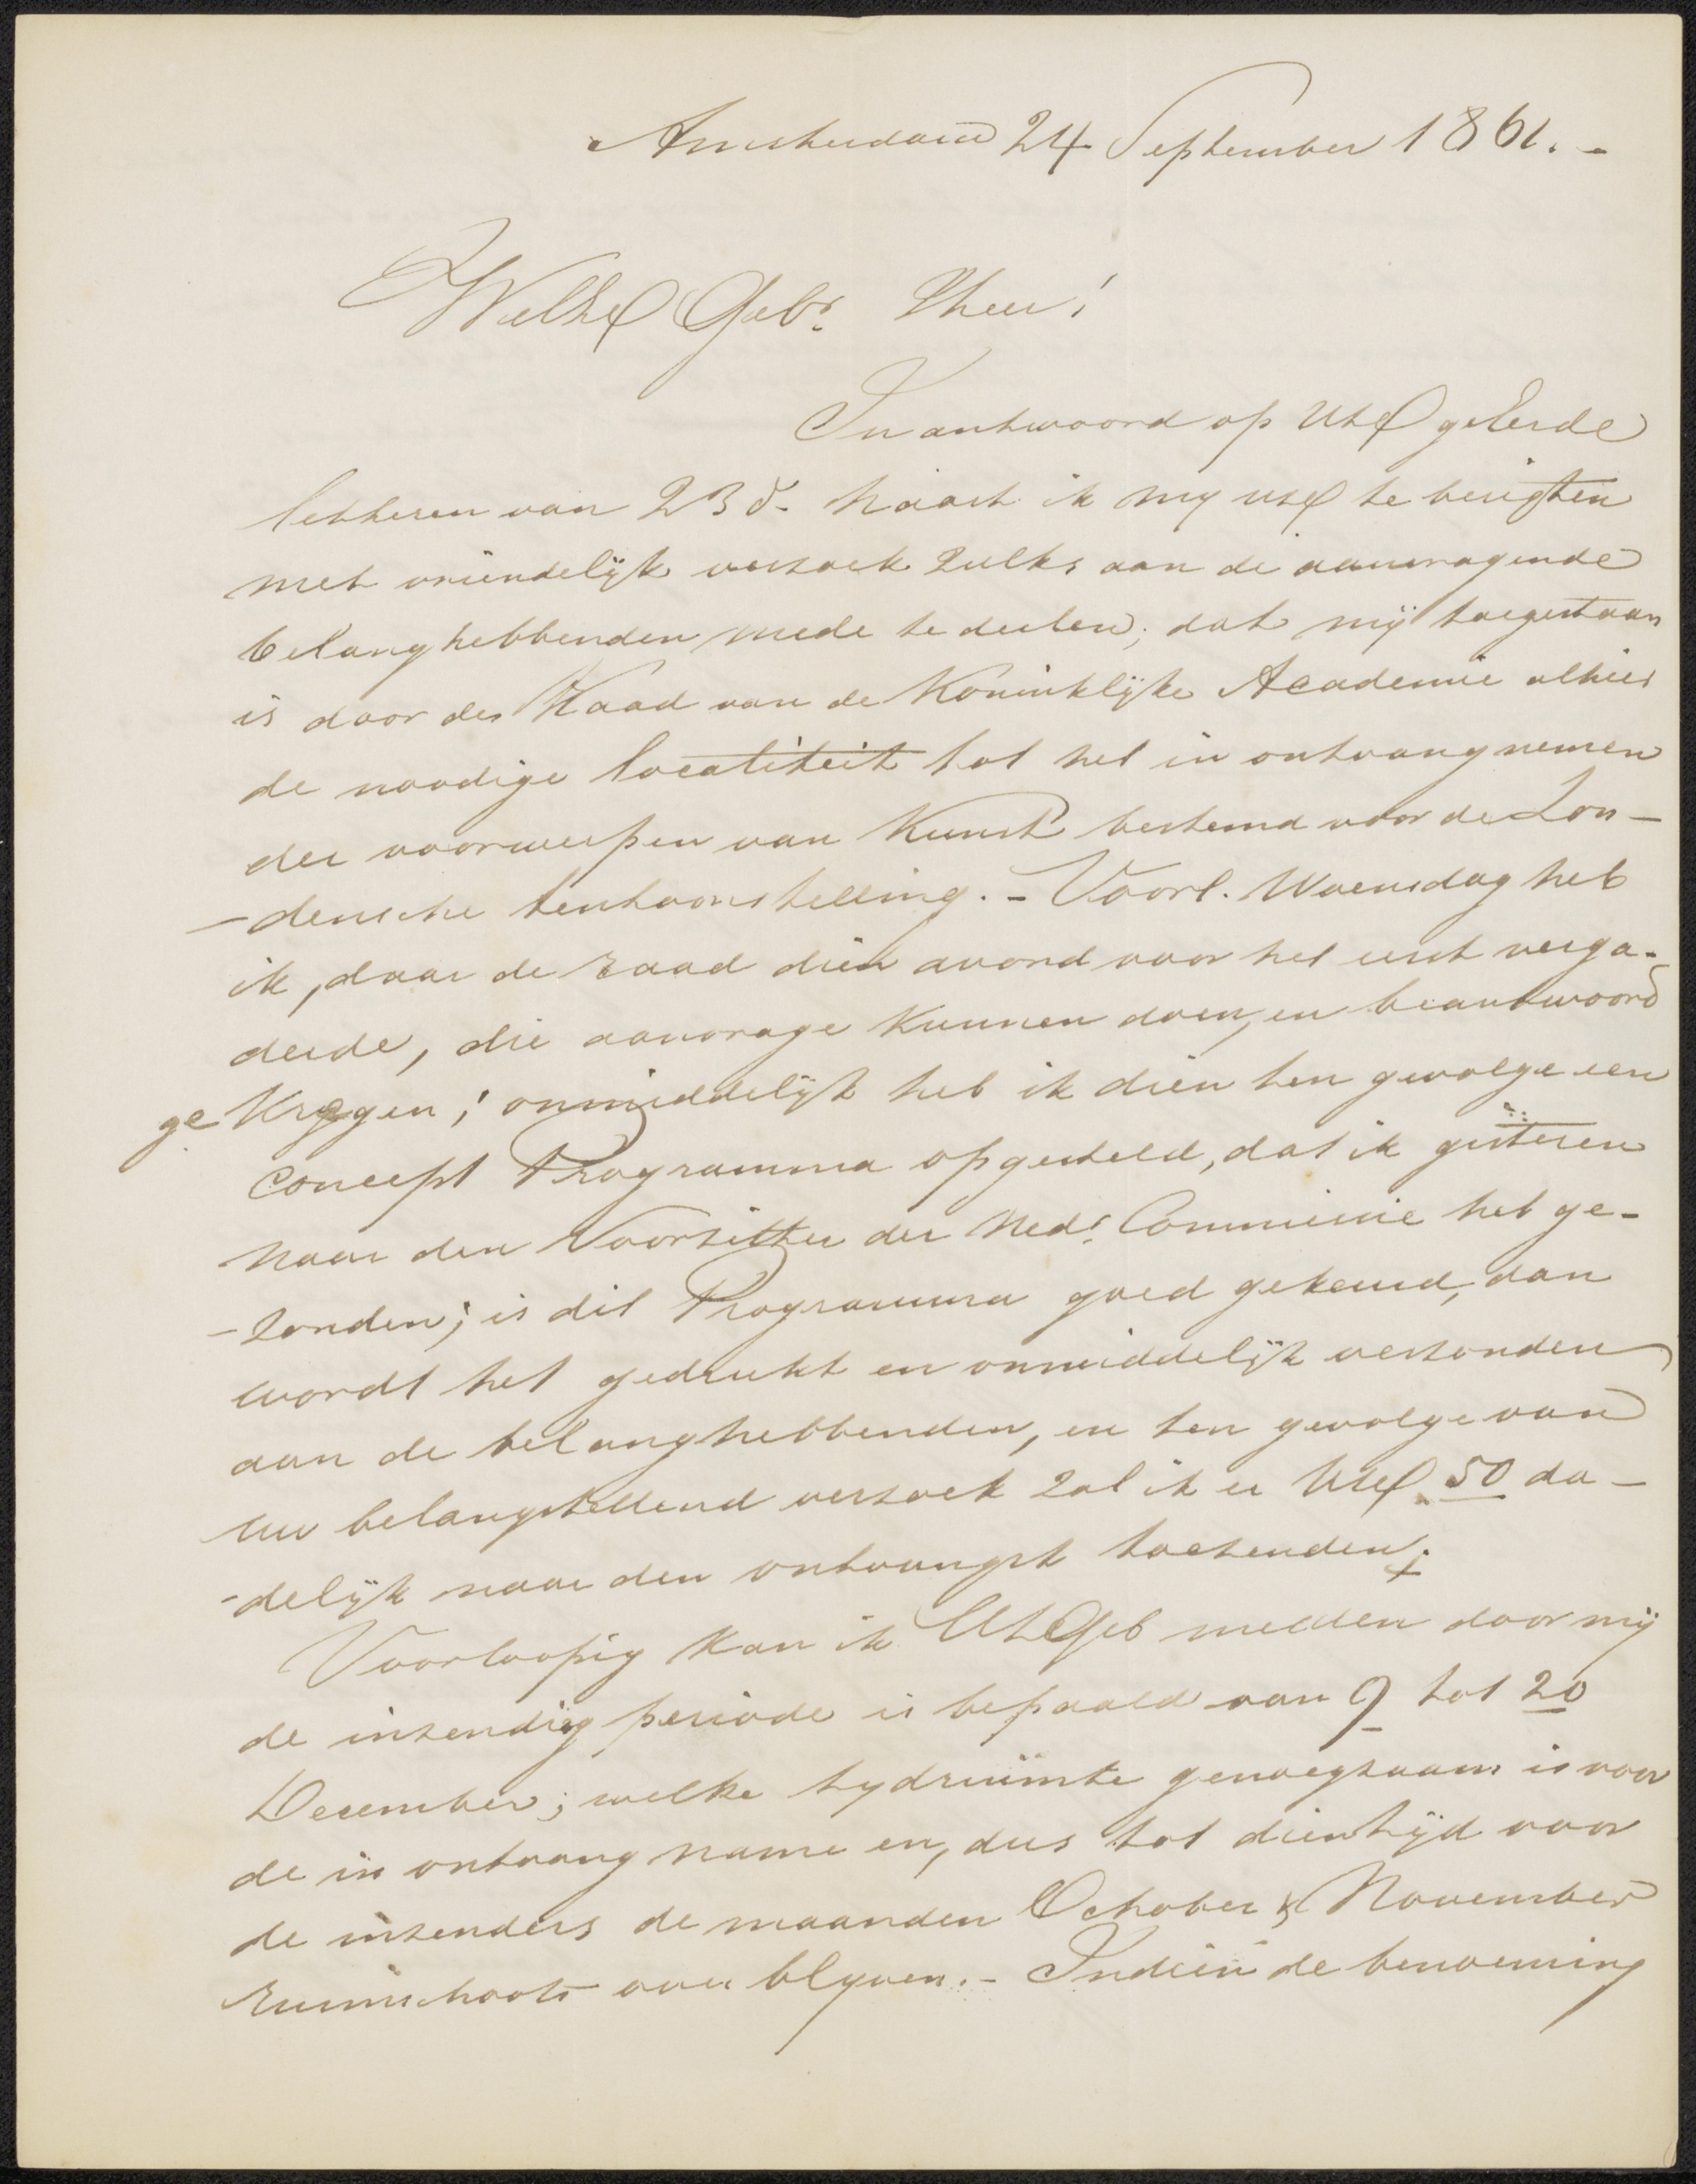 Amsterdam 24 September 1861. -
WelEd Gebr Heer!
In antwoord op UEd geëerde
letteren van 23 d. haast ik my UEd te berigten
met vriendelijk verzoek zulks aan de aanvragende
belanghebbenden mede te deelen; dat mij toegestaan
is door den Raad van de Koninklijke Academie alhier
de noodige localiteit tot het in ontvang nemen
der voorwerpen van Kunst bestemd voor de Lon-
-densche tentoonstelling. - Voorl. Woensdag heb
ik, daar de raad dien avond voor het eerst verga-
derde, die aanvrage kunnen doen, en beantwoord
gekregen; onmiddelijk heb ik dien ten gevolge een
concept Programma opgesteld, dat ik gisteren
naar den Voorzitter der Nedr. Commissie heb ge-
-zonden; is dit Programma goed gekeurd, dan
wordt het gedrukt en onmiddelijk verzonden
aan de belanghebbenden, en ten gevolge van
uw belangstellend verzoek zal ik er UEd 50 da-
-delijk naar den ontvangst toezenden.
Voorloopig kan ik UEdGeb melden door mij
de inzending periode is bepaald van 9 tot 20
December; welke tydruimte genoegzaam is voor
de in ontvang name en, dus tot dien tijd voor
de inzenders de maanden October & November
ruimschoots over blyven. - Indien de benoeming